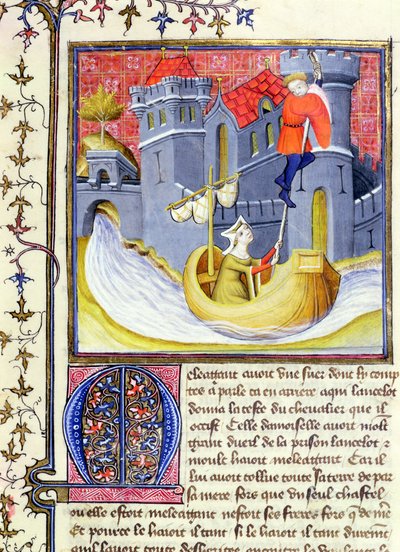 Meleattant auoit vne suer dont ly comp
tes a parle ca en arriere a qui lancelot
donna la teste du cheualier que il
occist Celle damoiselle auoit molt
grant dueil de la prison lancelot &
moult haioit meleattant Car il
lui auoit tollue toute sa terre de par
sa mere fors que vn seul chastel
ou elle estoit meleattant nestoit ses freres fors q̄ de me
Et pource le haioit il tant si le haioit il tant durem̄t
quil lauoit toute desheritee